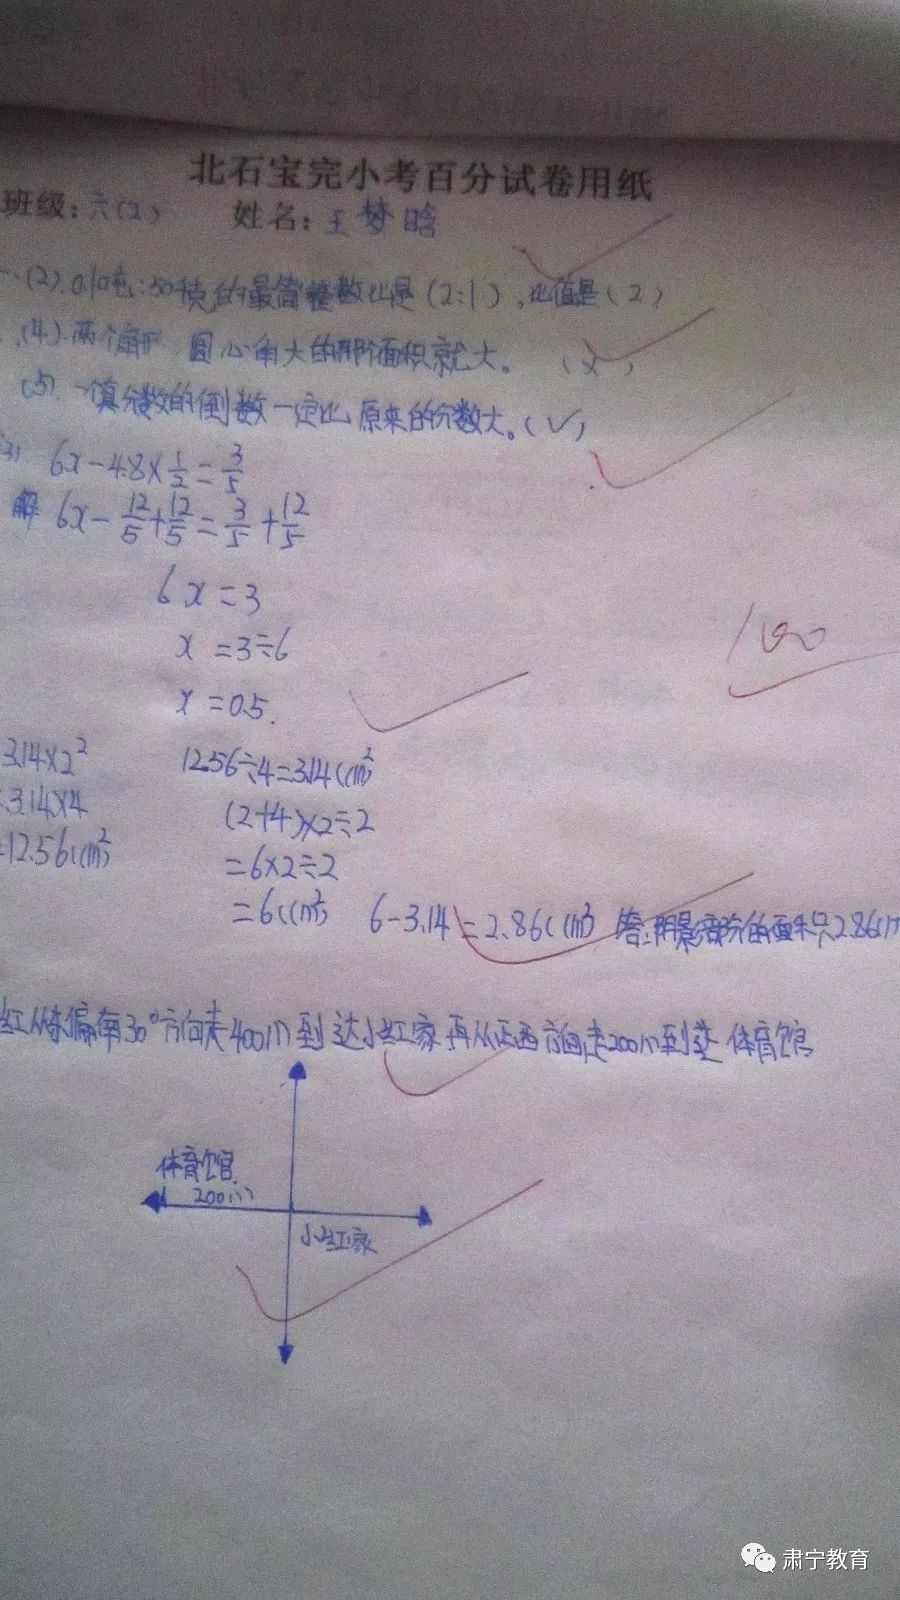 北石宝完小考百分试卷用纸
班级：六(2) 姓名：王梦晗
一(2).0.10吨:50千克的最简整数比是(2:1),比值是(2)
(4).两个扇形 圆心角大的那个面积就大。 (×)
(5).一个真分数的倒数一定比原来的分数大。(√)
6x-4.8×1/2=3/5
解 6x-12/5+12/5=3/5+12/5
6x=3
x=3÷6
x=0.5.
100
3.14×2² 12.56÷4=3.14(cm²)
=3.14×4 (2+4)×2÷2
=12.56(cm²) =6×2÷2
=6(cm²) 6-3.14=2.86(cm²) 答:阴影部分的面积是2.86cm
红从东偏南30°方向走400m到达小红家再从正西方向走200m到达体育馆
体育馆
200m
小红家
肃宁教育